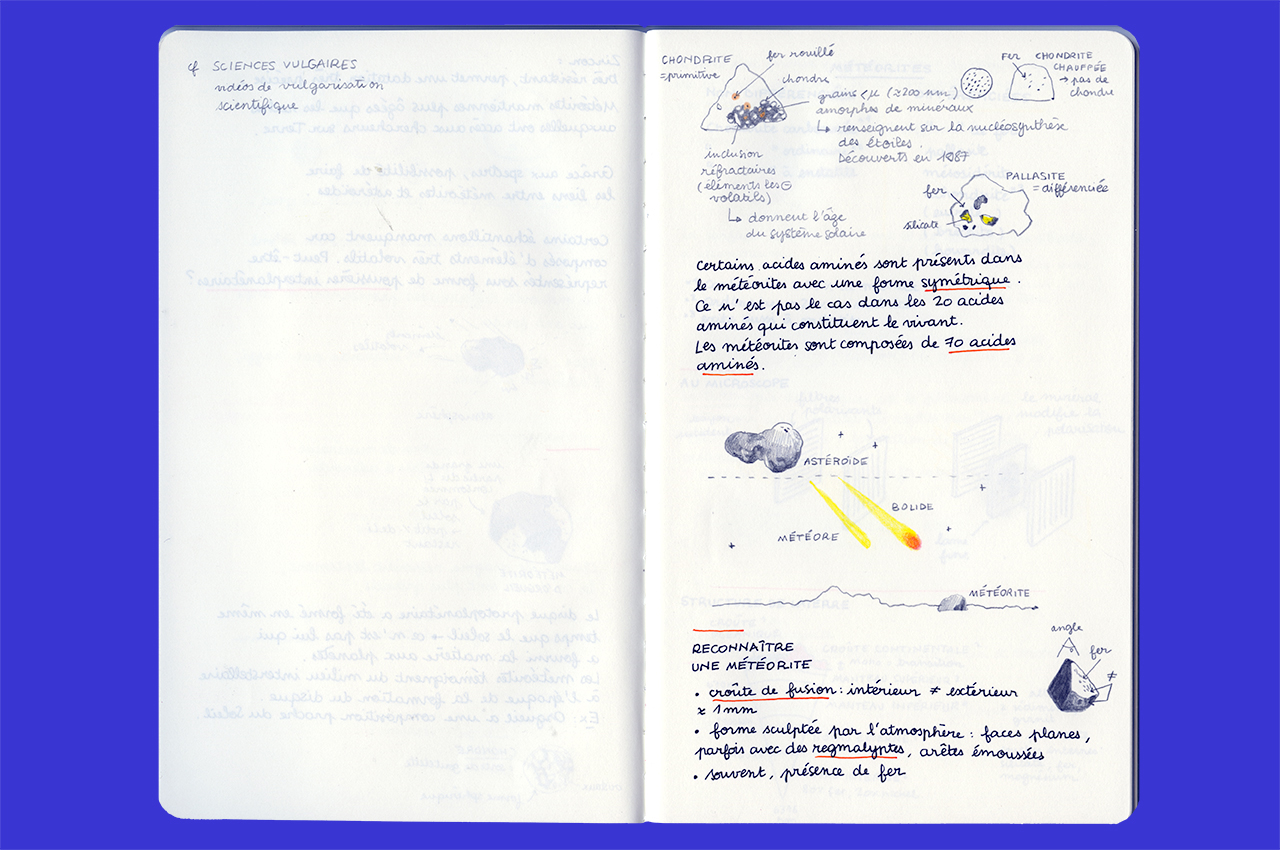 cf SCIENCES VULGAIRES
vidéos de vulgarisation
scientifique
CHONDRITE
= primitive
fer rouillé
chondre
grains < μ (≥200 nm)
amorphes de minéraux
↳ renseignent sur la nucléosynthèse
des étoiles.
Découverts en 1987
inclusion
réfractaires
(éléments les ⊖
volatils)
↳ donnent l'âge
du système solaire
FER
CHONDRITE
CHAUFFÉE
→ pas de
chondre
PALLASITE
= différenciée
fer
silicate
Certains acides aminés sont présents dans
le météorites avec une forme symétrique.
Ce n'est pas le cas dans les 20 acides
aminés qui constituent le vivant.
Les météorites sont composées de 70 acides
aminés.
ASTÉROÏDE
BOLIDE
MÉTÉORE
MÉTÉORITE
RECONNAÎTRE
UNE MÉTÉORITE
• croûte de fusion : intérieur ≠ extérieur
≈ 1 mm
• forme sculptée par l'atmosphère : faces planes,
parfois avec des regmalyptes, arêtes émoussées
• souvent, présence de fer
angle
fer
≠